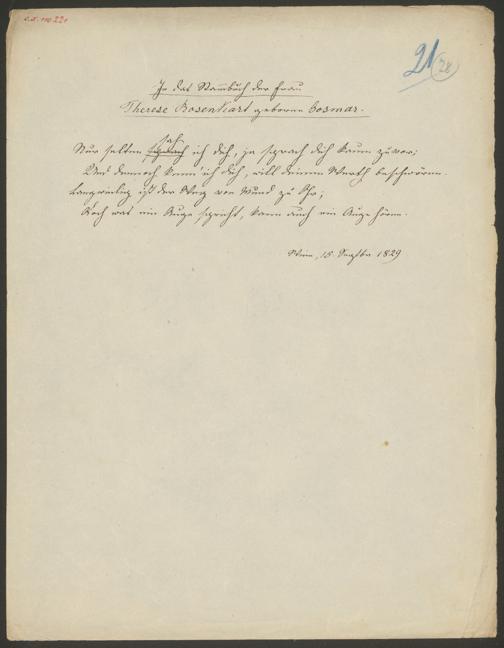 21
28
In das Stammbuch der Frau
Therese Rosenkart geborene Cosmar.
sah
Nur selten sprach ich dich, ja sprach dich kaum zuvor;
Und dennoch kenn' ich dich, will deinen Werth beschwören.
Langweilig ist der Weg von Mund zu Ohr;
Doch was ein Auge spricht, kann auch ein Auge hören.
Wien, 15. Septbr 1829